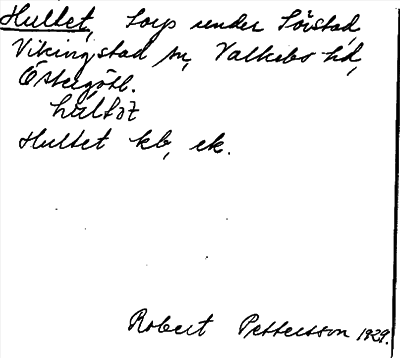 Hultet, torp under Sörstad,
Vikingstad sn, Valkebo hd,
Östergötl.
hultət
Hultet kb, ek.
Robert Pettersson 1929.